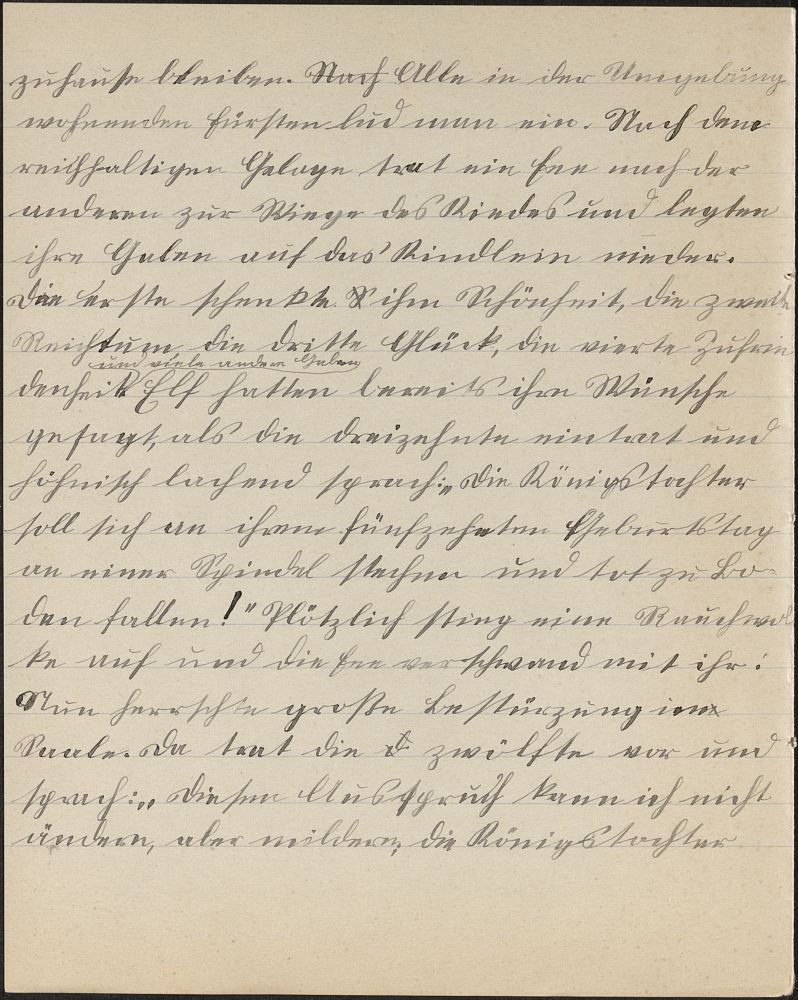 zuhause bleiben. Auch Alle in der Umgebung
wohnenden Fürsten lud man ein. Nach dem
reichhaltigen Gelage trat ein Fee nach der
anderen zur Wiege des Kindes und legten
ihre Gaben auf das Kindlein nieder.
Die erste schenkte ihm Schönheit, die zweite
Reichtum die dritte Glück, die vierte Zufrie
und viele andere Gaben
denheit Elf hatten bereits ihre Wünsche
gesagt, als die dreizehnte eintrat und
höhnisch lachend sprach: „Die Königstochter
soll sich an ihrem fünfzehnten Geburtstag
an einer Spindel stechen und tot zu Bo-
den fallen!" Plötzlich stieg eine Rauchwol
ke auf und die Fee verschwand mit ihr.
Nun herrschte große Bestürzung im
Saale. Da trat die zwölfte vor und
sprach: „Diesen Ausspruch kann ich nicht
ändern, aber mildern, die Königstochter